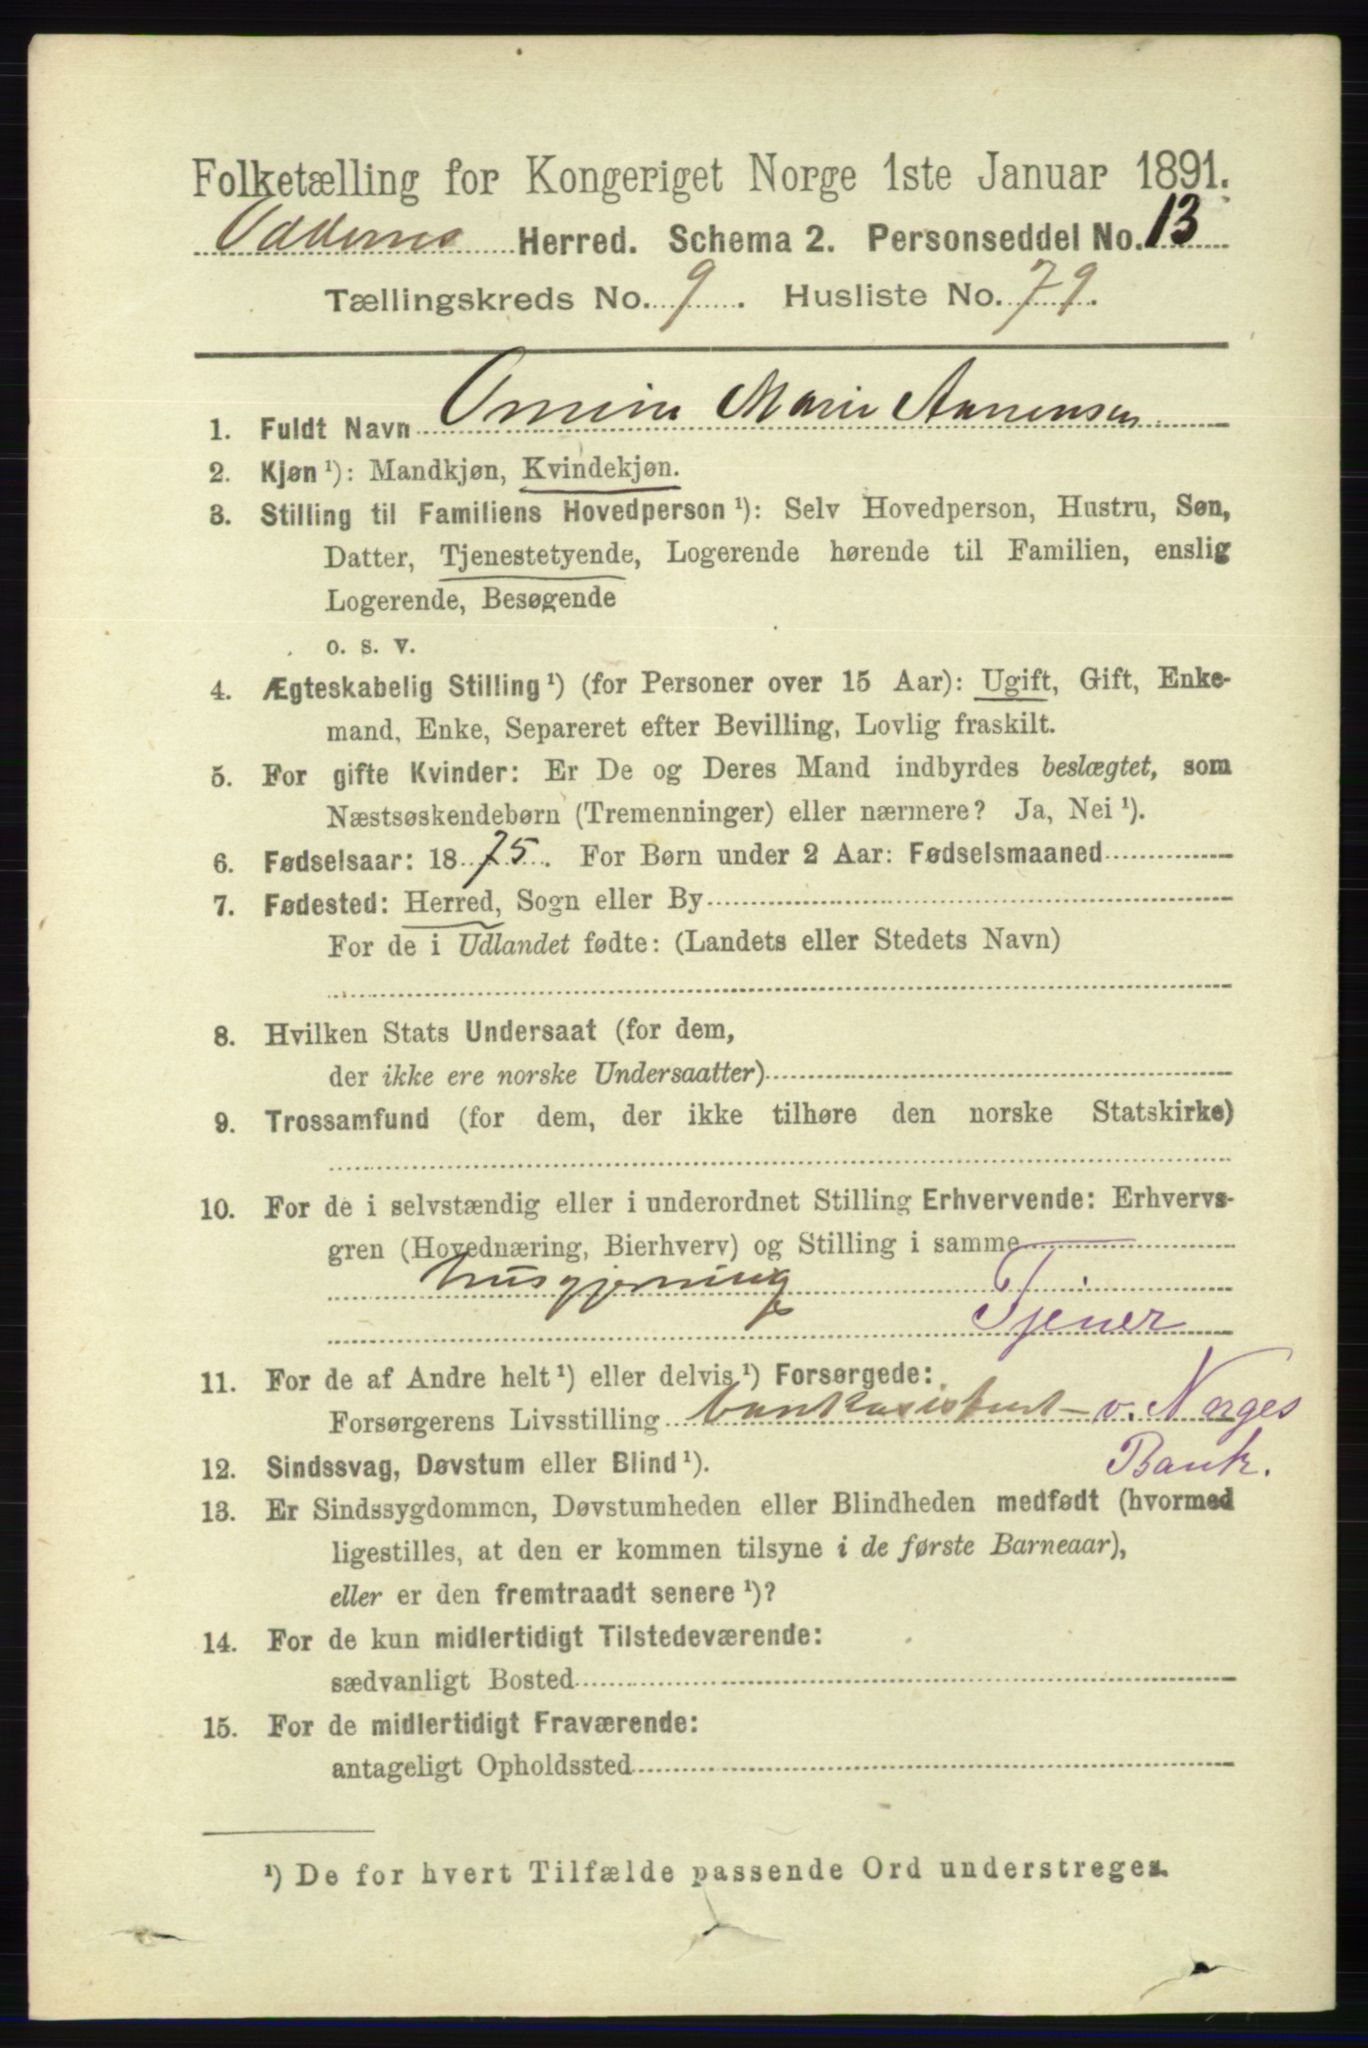 Folketælling for Kongeriget Norge 1ste Januar 1891.
Oddernes Herred. Schema 2. Personseddel No. 13
Tællingskreds No. 9. Husliste No. 79.
1. Fuldt Navn Omine Marie Aanensen
2. Kjøn ¹): Mandkjøn, Kvindekjøn.
3. Stilling til Familiens Hovedperson ¹): Selv Hovedperson, Hustru, Søn,
Datter, Tjenestetyende, Logerende hørende til Familien, enslig
Logerende, Besøgende
o. s. v.
4. Ægteskabelig Stilling ¹) (for Personer over 15 Aar): Ugift, Gift, Enke-
mand, Enke, Separeret efter Bevilling, Lovlig fraskilt.
5. For gifte Kvinder: Er De og Deres Mand indbyrdes beslægtet, som
Næstsøskendebørn (Tremenninger) eller nærmere? Ja, Nei ¹).
6. Fødselsaar: 1875. For Børn under 2 Aar: Fødselsmaaned
7. Fødested: Herred, Sogn eller By
For de i Udlandet fødte: (Landets eller Stedets Navn)
8. Hvilken Stats Undersaat (for dem,
der ikke ere norske Undersaatter)
9. Trossamfund (for dem, der ikke tilhøre den norske Statskirke)
10. For de i selvstændig eller i underordnet Stilling Erhvervende: Erhvervs-
gren (Hovednæring, Bierhverv) og Stilling i samme
husgjerning
Tjener
11. For de af Andre helt ¹) eller delvis ¹) Forsørgede:
Forsørgerens Livsstilling bankasistent - v. Norges
Bank.
12. Sindssvag, Døvstum eller Blind ¹).
13. Er Sindssygdommen, Døvstumheden eller Blindheden medfødt (hvormed
ligestilles, at den er kommen tilsyne i de første Barneaar),
eller er den fremtraadt senere ¹)?
14. For de kun midlertidigt Tilstedeværende:
sædvanligt Bosted
15. For de midlertidigt Fraværende:
antageligt Opholdssted
¹) De for hvert Tilfælde passende Ord understreges.